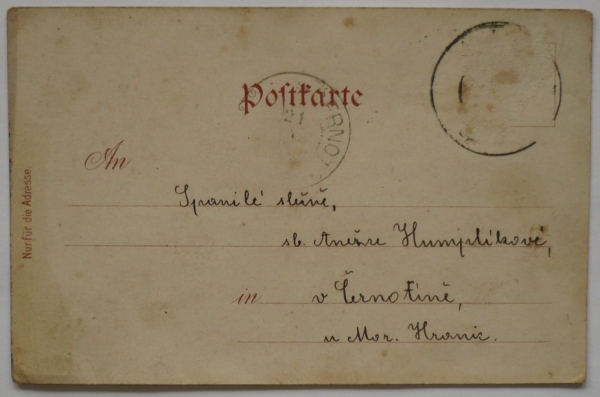 Postkarte
21
An
Spanilé slečně,
sl. Anežce Humplíkové,
in v Černotíně,
u Mor. Hranic.
Nur für die Adresse.